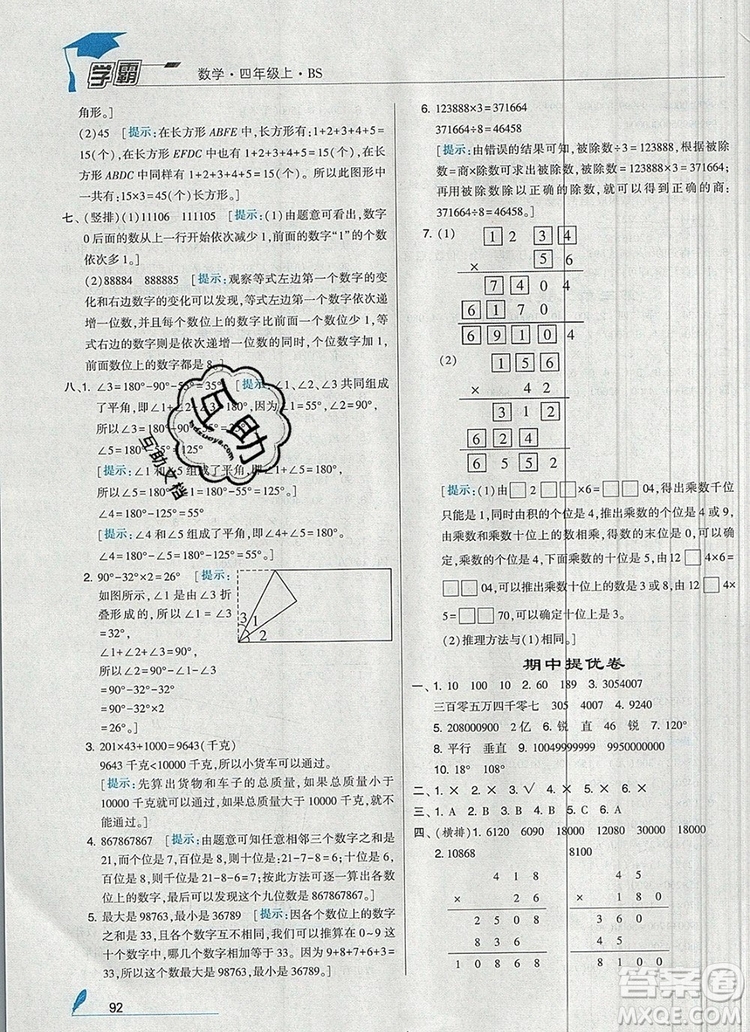 学霸
数学·四年级上·BS
角形。]
(2)45 [提示：在长方形 ABFE 中 1+2+3+4+5=
15(个)，在长方形 EFDC 中也有 1+2+3+4+5=
15(个)，在长方形 ABDC 中同样有 1+2+3+4+5=
15(个)。长方形个数也有 15 个。所以此图形中
一共有：15×3=45(个)。]
七、(竖排)(1)11106 111105 [提示：(1)由题意可看出，数字
0 后面的数从上一行开始依次减少 1，前面的数字“1”的个数
依次多 1。]
(2)88884 888885 [提示：观察等式左边第一个数字的变
化和右边数字的变化可以发现，等式左边第一个数字依次递
增一位数，并且每个数位上的数字比前面一个数位少 1，右
边的数字则是依次增一位数的同时，个位上的数字依次递
增，前面数位上的数字都是 8。]
八、1. ∠3=180°-90°-55°=35° [提示：∠1、∠2、∠3 共同组成
了平角，即∠1+∠2+∠3=180°，因为∠1=55°，∠2=90°，
所以∠3=180°-90°-55°=35°。]
∠5=180°-55°=125°
[提示：∠1 和∠5 组成了平角，即∠1+∠5=180°，所以
∠5=180°-55°=125°。]
∠4=180°-125°=55°
[提示：∠4 和∠5 组成了平角，即∠4+∠5=180°，所以
∠4=180°-∠5=180°-125°=55°。]
2. 90°-32°×2=26° [提示：
如图所示，由∠1=∠3 折
叠形成的，所以∠1=∠3
=32°，
∠1+∠2+∠3=90°
所以∠2=90°-∠1-∠3
=90°-32°-32°
=26°。]
3 1
2
3. 201×43+1000=9643(千克)
9643 千克<10000 千克，所以小货车可以通过。
[提示：先算出货物和车子的总质量，如果总质量小于
10000 千克就可以通过，如果总质量大于 10000 千克就
不能通过。]
4. 867867867 [提示：由题意可知任意相邻三个数字之和是
21，而个位是 7，十位是 6，则百位是：21-7-6=8；千位
是：21-8-6=7；万位和十万位可按照这样逐一推算出各
数位上的数字，所以可以发现这个九位数是 867867867。]
5. 最大是 98763，最小是 36789 [提示：在 0 到 9 这
十个数字中，哪五个数字相加等于 33。因为 9+8+7+6+3
=33，所以最大的五位数是 98763，最小的五位数是 36789。]
92
6. 123888×3=371664
371664÷8=46458
[提示：由错误的结果可知，被除数÷3=123888，根据被
除数=商×除数可求出被除数：123888×3=371664；
再用被除数除以正确的除数，就可以得到正确的商：
371664÷8=46458。]
7. (1)
1 2 3 4
× 5 6
7 4 0 4
6 1 7 0
6 9 1 0 4
(2)
1 5 6
× 4 2
3 1 2
6 2 4
6 5 5 2
[提示：(1)由□2□×6=□□04，得出乘数千位
只能是 1，同时由积的个位是 4，推出乘数的个位是 4 或 9，
由乘数和乘数十位上的数相乘，得数的末位是 0，可以确
定，乘数的十位是 5，乘数的个位上是 4，由 12□4×6=
□□04，可以推出乘数的十位上的数是 3 或 8，由 12□4×
5=□□70，可以确定十位上是 3。
(2)推理方法与(1)相同。]
期中提优卷
一、1. 10 100 10 2. 60 189 3. 3054007
三百零五万四千零七 305 4007 4. < > =
5. 208000900 2亿 6. 锐 直 锐 7. 120°
8. 平行 垂直 9. 10049999999 9950000000
10. 18° 108°
二、1. × 2. × 3. √ 4. × 5. ×
三、1. A 2. B 3. A 4. D 5. A
四、(横排)1. 6120 6090 18000 12080 30000 18000
2. 10868 8100
4 1 8
× 2 6
2 5 0 8
8 3 6
1 0 8 6 8
4 5
× 1 8 0
3 6 0
4 5
8 1 0 0
互助
hdzuoye.com
互助文档
答案圈
MXQE.COM